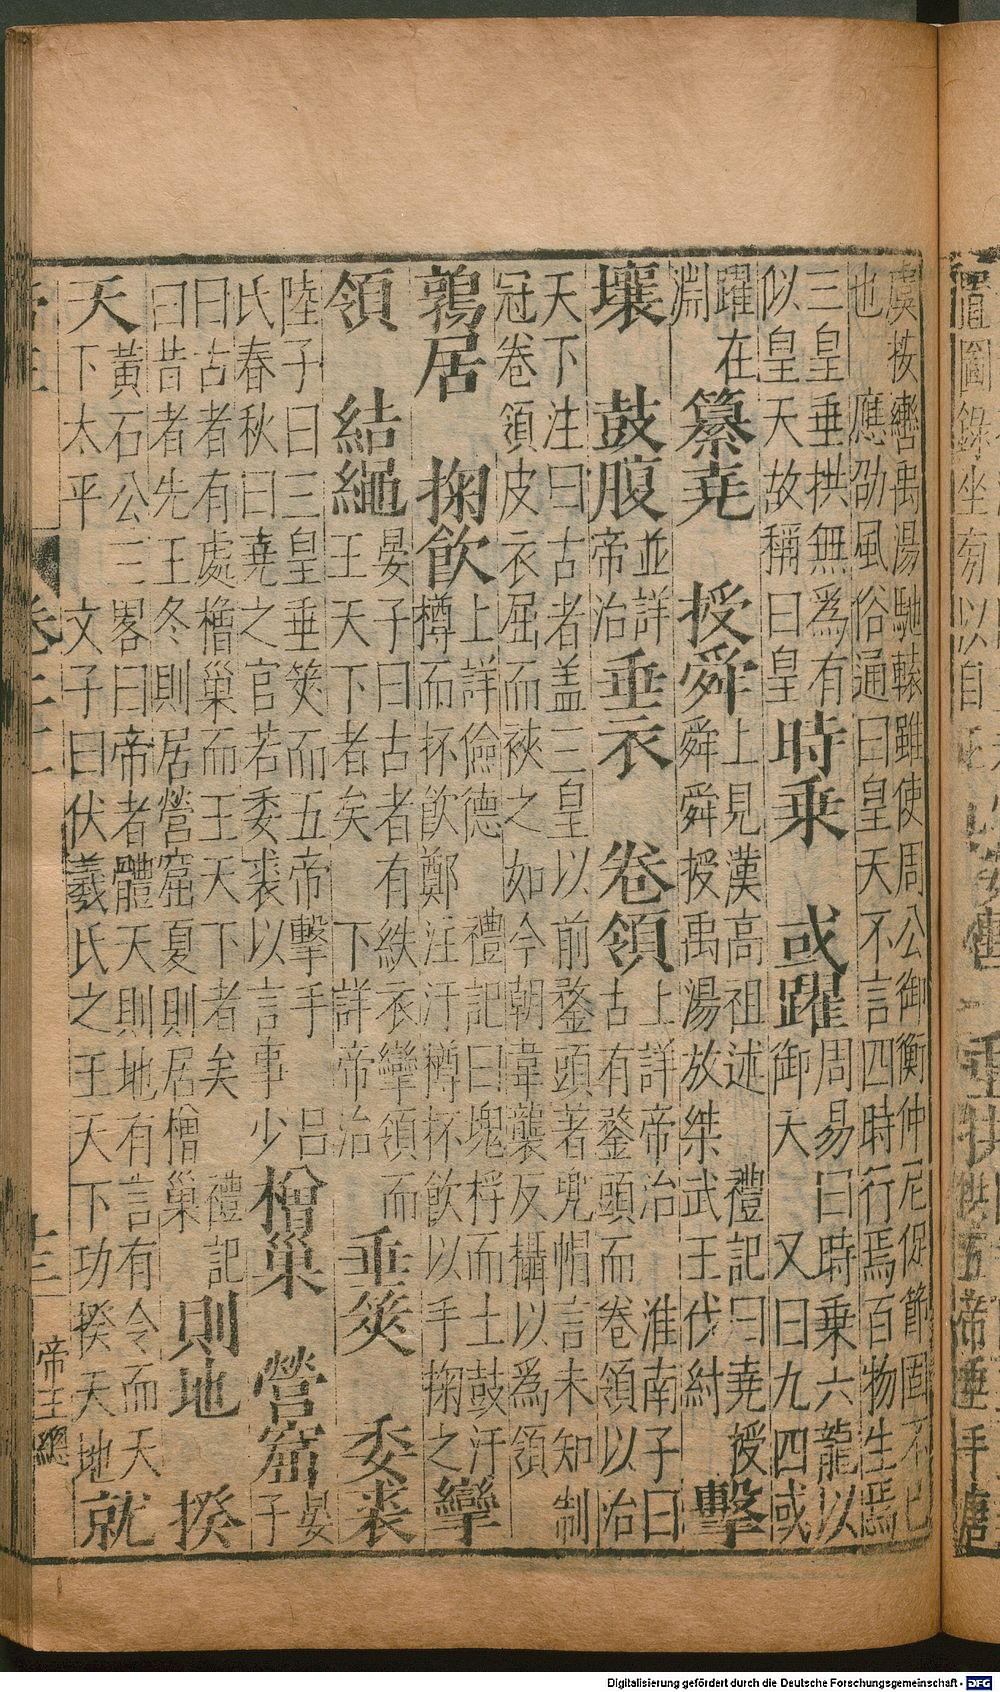 虞按轡禹湯馳轅雖使周公御衡仲尼促節固不已
也　應劭風俗通曰皇天不言四時行焉百物生焉
三皇垂拱無為有
似皇天故稱曰皇
時乘　或躍
周易曰時乘六龍以
御天　又曰九四或
躍在
淵
纂堯　授舜
上見漢高祖述　禮記曰堯授
舜舜授禹湯放桀武王伐紂
擊
壤　鼓腹
並詳
帝治
垂衣　卷領
上詳帝治　淮南子曰
古有鍪頭而卷領以治
天下注曰古者盖三皇以前鍪頭著兜帽言未知制
冠卷領皮衣屈而裌之如今朝韋襲反攝以為領
鶉居　掬飲
上詳儉德　禮記曰塊桴而土鼓汙
樽而抔飲鄭注汙樽杯飲以手掬之
攣
領　結繩
晏子曰古者有紩衣攣領而
王天下者矣　下詳帝治
垂筴　委裘
陸子曰三皇垂筴而五帝擊手　呂
氏春秋曰堯之官若委裘以言事少
橧巢　營窟
晏
子
曰古者有處橧巢而王天下者矣　禮記
曰昔者先王冬則居營窟夏則居橧巢
則地　揆
天
黃石公三畧曰帝者體天則地有言有令而天
下太平　文子曰伏羲氏之王天下功揆天地
就
十三
帝王總
Digitalisierung gefördert durch die Deutsche Forschungsgemeinschaft - DFG